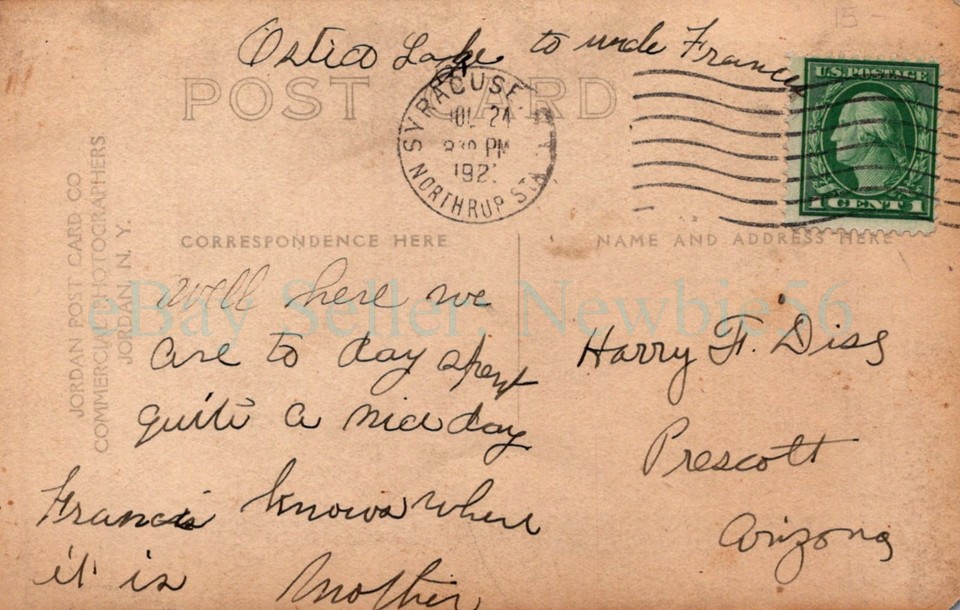 Ostico Lake to uncle Frances
POST CARD
SYRACUSE, N.Y.
JUL 24
8 30 PM
192
NORTHRUP STA.
U.S. POSTAGE
1 CENT 1
CORRESPONDENCE HERE
NAME AND ADDRESS HERE
JORDAN POST CARD CO
COMMERCIAL PHOTOGRAPHERS
JORDAN, N. Y.
eBay Seller: Newbie56
Well here we
are to day spent
quite a nice day
Francis knows where
it is Mother
Harry F. Diss
Prescott
Arizona
15-